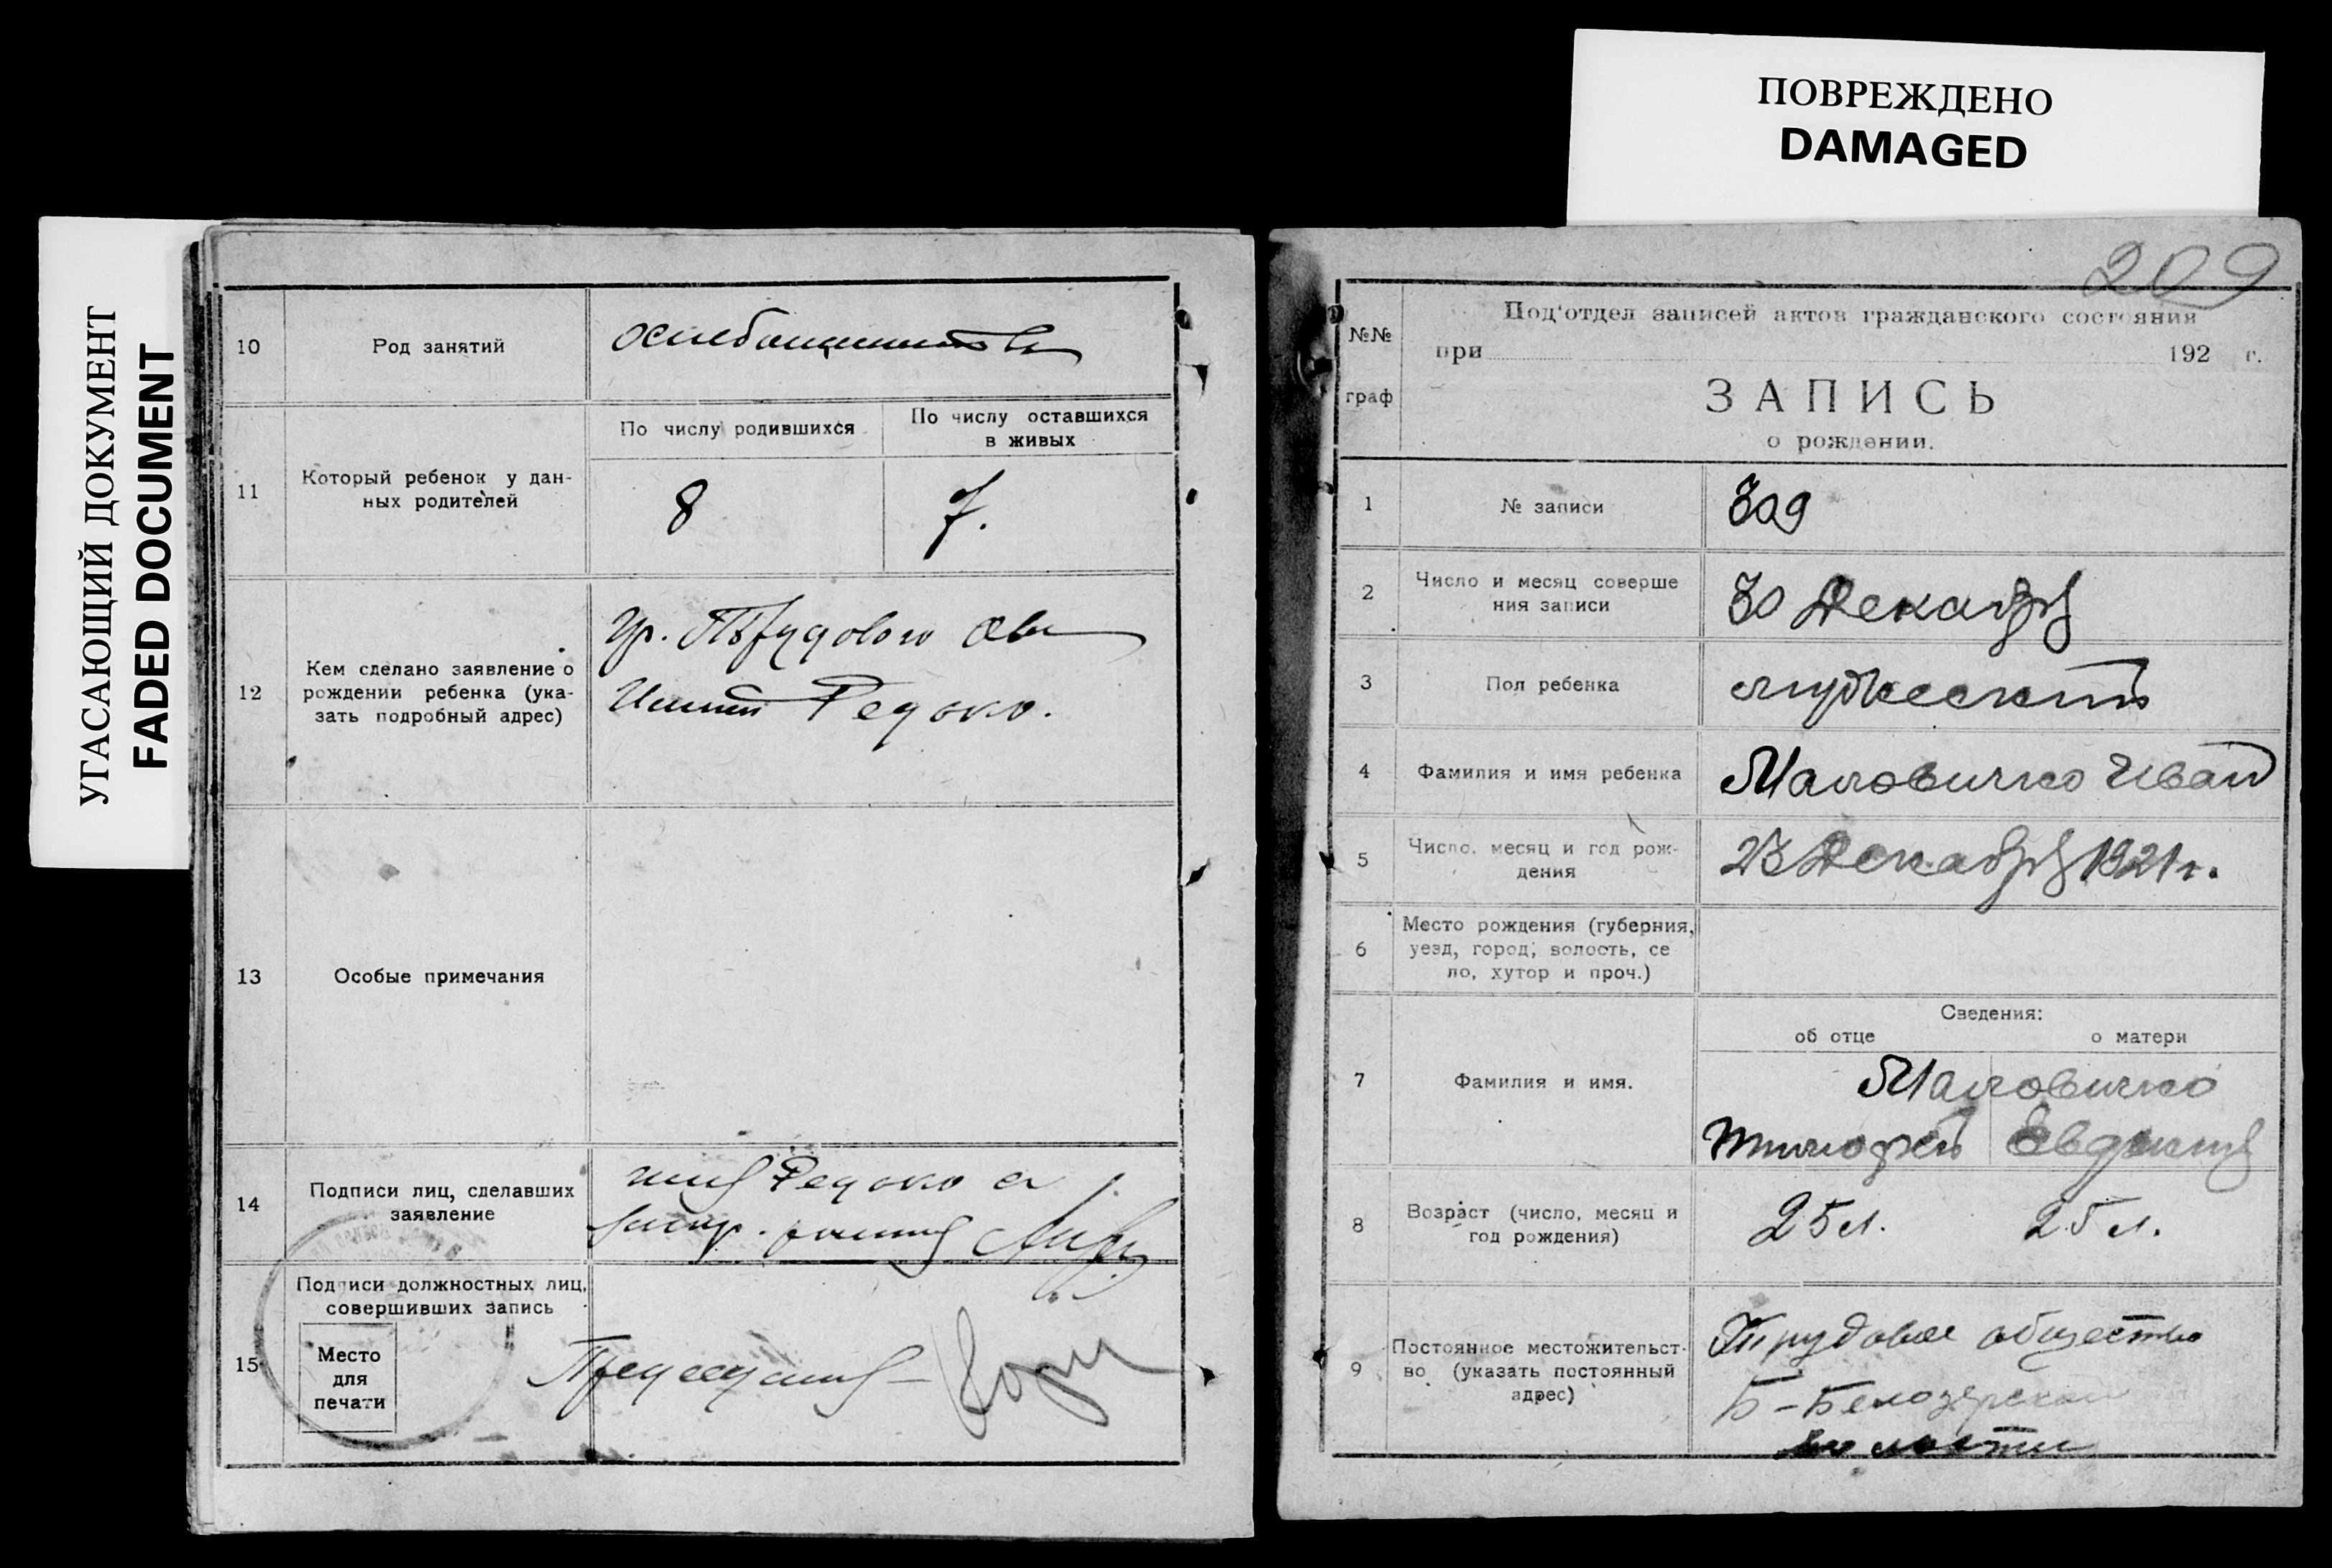 УГАСАЮЩИЙ ДОКУМЕНТ
FADED DOCUMENT
ПОВРЕЖДЕНО
DAMAGED
10
Род занятий
11
Который ребенок у дан-
ных родителей
По числу родившихся
По числу оставшихся
в живых
8
7.
12
Кем сделано заявление о
рождении ребенка (ука-
зать подробный адрес)
гр. Трудового
13
Особые примечания
14
Подписи лиц, сделавших
заявление
15
Подписи должностных лиц,
совершивших запись
Место
для
печати
209
№№
граф
Под'отдел записей актов гражданского состояния
при 192 г.
ЗАПИСЬ
о рождении.
1
№ записи
309
2
Число и месяц соверше
ния записи
30 Декабря
3
Пол ребенка
мужеский
4
Фамилия и имя ребенка
Маловичко Иван
5
Число, месяц и год рож-
дения
23 Декабря 1921 г.
6
Место рождения (губерния,
уезд, город, волость, се
ло, хутор и проч.)
Сведения:
об отце
о матери
7
Фамилия и имя.
Маловичко
Тимофей
8
Возраст (число, месяц и
год рождения)
25 л.
25 л.
9
Постоянное местожительст-
во (указать постоянный
адрес)
Трудовое общество
Б-Белозерской
волости